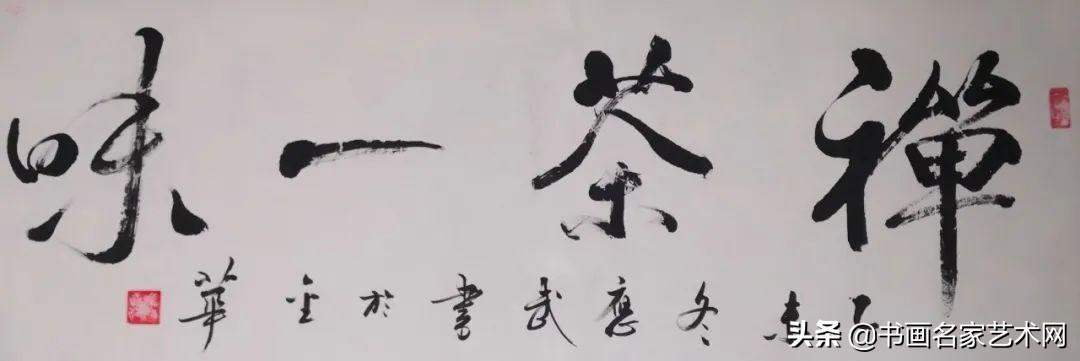 禪茶一味
冬應武書於金華
头条 @书画名家艺术网